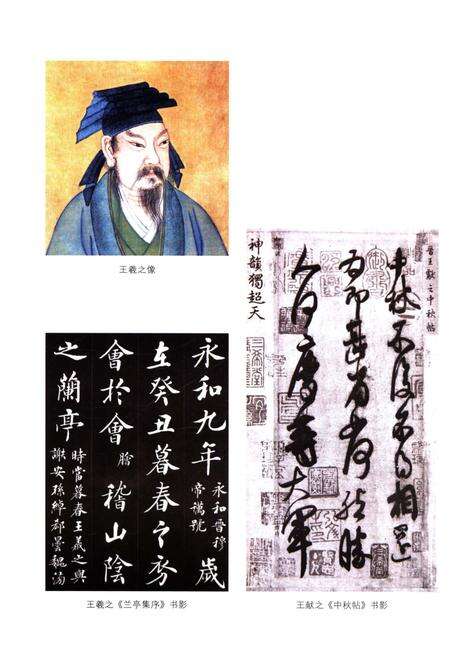 王羲之像
永和九年
永和晉穆
帝號
歲
在癸丑暮春之初
會於會
膾
稽山陰
之蘭亭
時當暮春王羲之與
謝安孫綽郗曇魏滂
王羲之《兰亭集序》书影
晉王獻之中秋帖
中秋不復不得相還
為即甚省如何然勝
人何慶等大軍
神韻獨超天
三希堂
王献之《中秋帖》书影